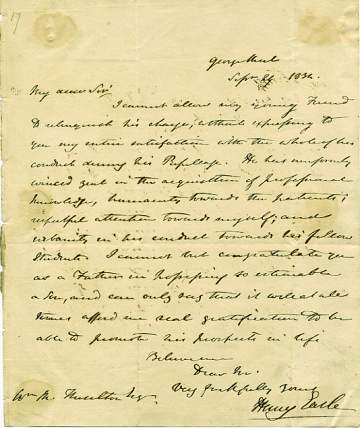 17
George Street
Sepr 24 1834.
My dear Sir
I cannot allow my young Friend
to relinquish his charge, without expressing to
you my entire satisfaction with the whole of his
conduct during his Pupilage. He has uniformly
evinced zeal in the acquisition of professional
knowledge, humanity towards the patients;
respectful attention towards myself; and
urbanity in his conduct towards his fellow
Students. I cannot but congratulate you
as a Father in possessing so estimable
a Son, and can only say that it will at all
times afford me real gratification to be
able to promote his prospects in life
Believe me
Dear Sir.
Very faithfully yours
Henry Earle
Wm M. Esqr